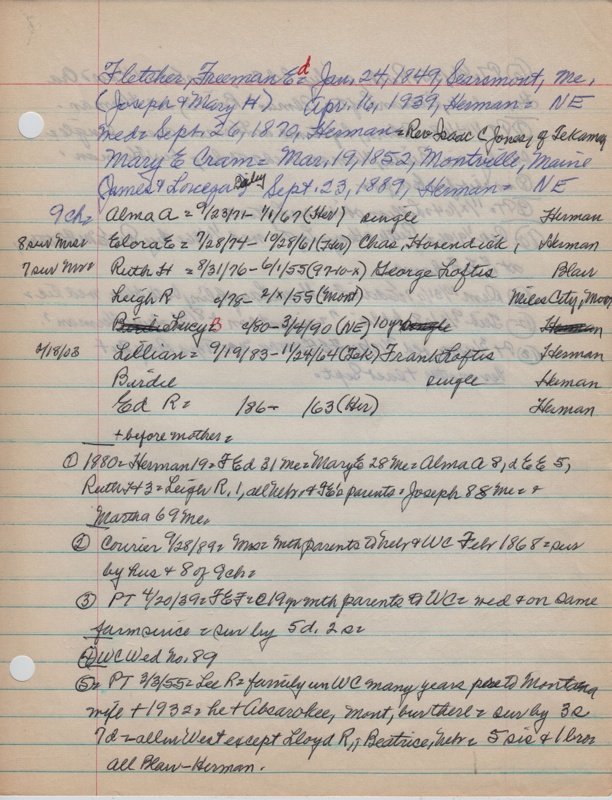 Fletcher, Freeman Ed = Jan. 24, 1849, Searsmont, Me.
(Joseph & Mary H.) Apr. 16, 1939, Herman = NE
wed = Sept. 26, 1870, Herman = Rev Isaac C Jones, of Tekama
Mary E Cram = Mar. 19, 1852, Montville, Maine
(James & Bixby Sept. 23, 1889, Herman = NE
9ch = Alma A = 9/23/71 - 1/1/67 (Her) single Herman
8 sur Mrs = Elora E = 7/28/74 - 10/28/61 (Her) Chas, Hosendick, Herman
7 sur Mr = Ruth H = 8/31/76 - 6/1/55 (97-10-x) George Loftis Blair
Leigh R c/78 - 2/x/55 (Mont) Miles City, Mon
Birdie Lucy B c/80 - 3/4/90 (NE) 10 yr single Herman
2/18/03 Lillian = 9/19/83 - 11/24/64 (Tek) Frank Loftis Herman
Birdie single Herman
Ed R = /86 - /63 (Her) Herman
+ before mother =
① 1880 = Herman 19 = F Ed 31 Me = Mary E 28 Me = Alma A 8, d E E 5,
Ruth H 3 = Leigh R, 1, all Nebr. & FE's parents = Joseph 88 Me = &
Martha 69 Me.
② Courier 9/28/89 = Mrs = mth parents to Nebr & WC Febr 1868 = sur
by hus & 8 of 9 ch =
③ PT 4/20/39 = F E F = @ 19 yr mth parents to WC = wed & on same
farm since = sur by 5 d. 2 s =
④ WC Wed No. 89
⑤ = PT 3/3/55 = Lee R = family in WC many years to Montana
wife + 1932 = he + Absarokee, Mont, bur there = sur by 3 s
7 d = all in West except Lloyd R, ; Beatrice, Nebr = 5 sis & 1 bro =
all Blair - Herman.